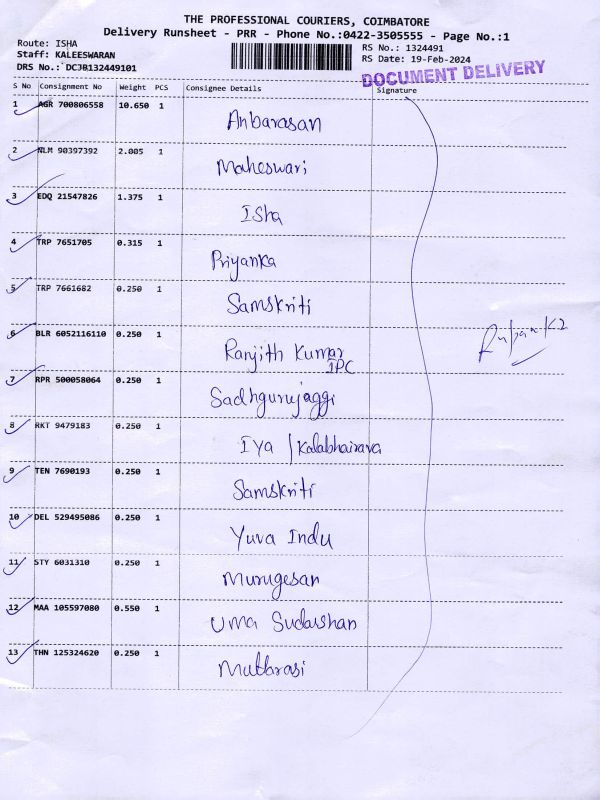 THE PROFESSIONAL COURIERS, COIMBATORE
Delivery Runsheet - PRR - Phone No.:0422-3505555 - Page No.:1
Route: ISHA
Staff: KALEESWARAN
DRS No.: DCJB132449101
RS No.: 1324491
RS Date: 19-Feb-2024
DOCUMENT DELIVERY
S No Consignment No Weight PCS Consignee Details Signature
1 AGR 700806558 10.650 1 Anbarasan
2 NLM 90397392 2.005 1 Maheswari
3 EDQ 21547826 1.375 1 Isha
4 TRP 7651705 0.315 1 Priyanka
5 TRP 7661682 0.250 1 Samskriti
6 BLR 6052116110 0.250 1 Ranjith Kumar
IPC
7 RPR 500058064 0.250 1 Sadhgurujaggi
8 RKT 9479183 0.250 1 IYA / Kalabhairava
9 TEN 7690193 0.250 1 Samskriti
10 DEL 529495086 0.250 1 Yuva Indu
11 STY 6031310 0.250 1 Murugesan
12 MAA 105597080 0.550 1 Uma Sudarshan
13 THN 125324620 0.250 1 Mutharasi